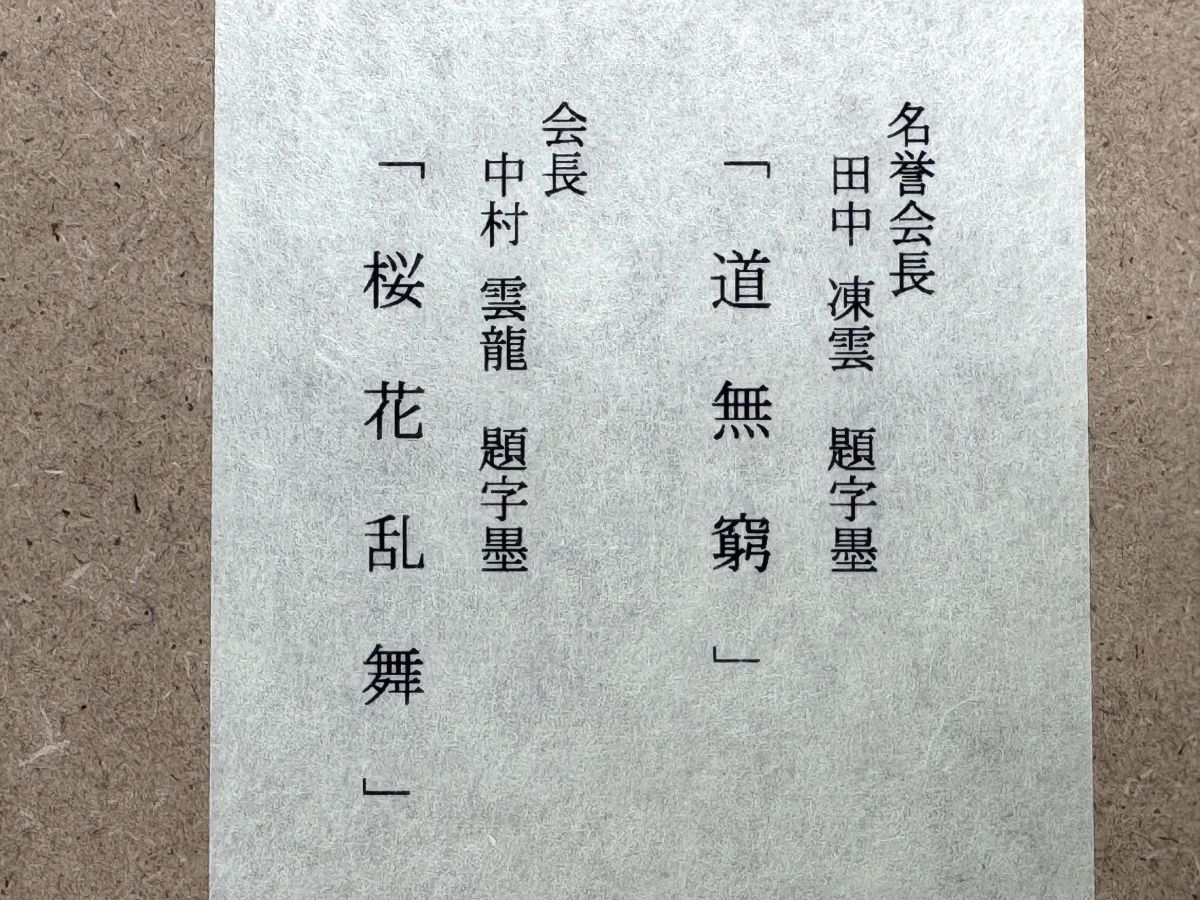 名誉会長
田中 凍雲 題字墨
「道無窮」
会長
中村 雲龍 題字墨
「桜花乱舞」